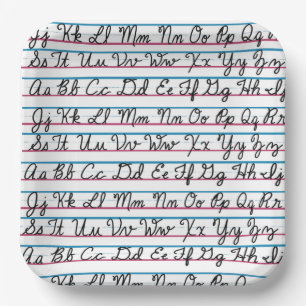 Jj Kk Ll Mm Nn Oo Pp Qq Rr
Ss Tt Uu Vv Ww Xx Yy Zz
Aa Bb Cc Dd Ee Ff Gg Hh Ii
Jj Kk Ll Mm Nn Oo Pp Qq Rr
Ss Tt Uu Vv Ww Xx Yy Zz
Aa Bb Cc Dd Ee Ff Gg Hh Ii
Jj Kk Ll Mm Nn Oo Pp Qq Rr
Ss Tt Uu Vv Ww Xx Yy Zz
Aa Bb Cc Dd Ee Ff Gg Hh